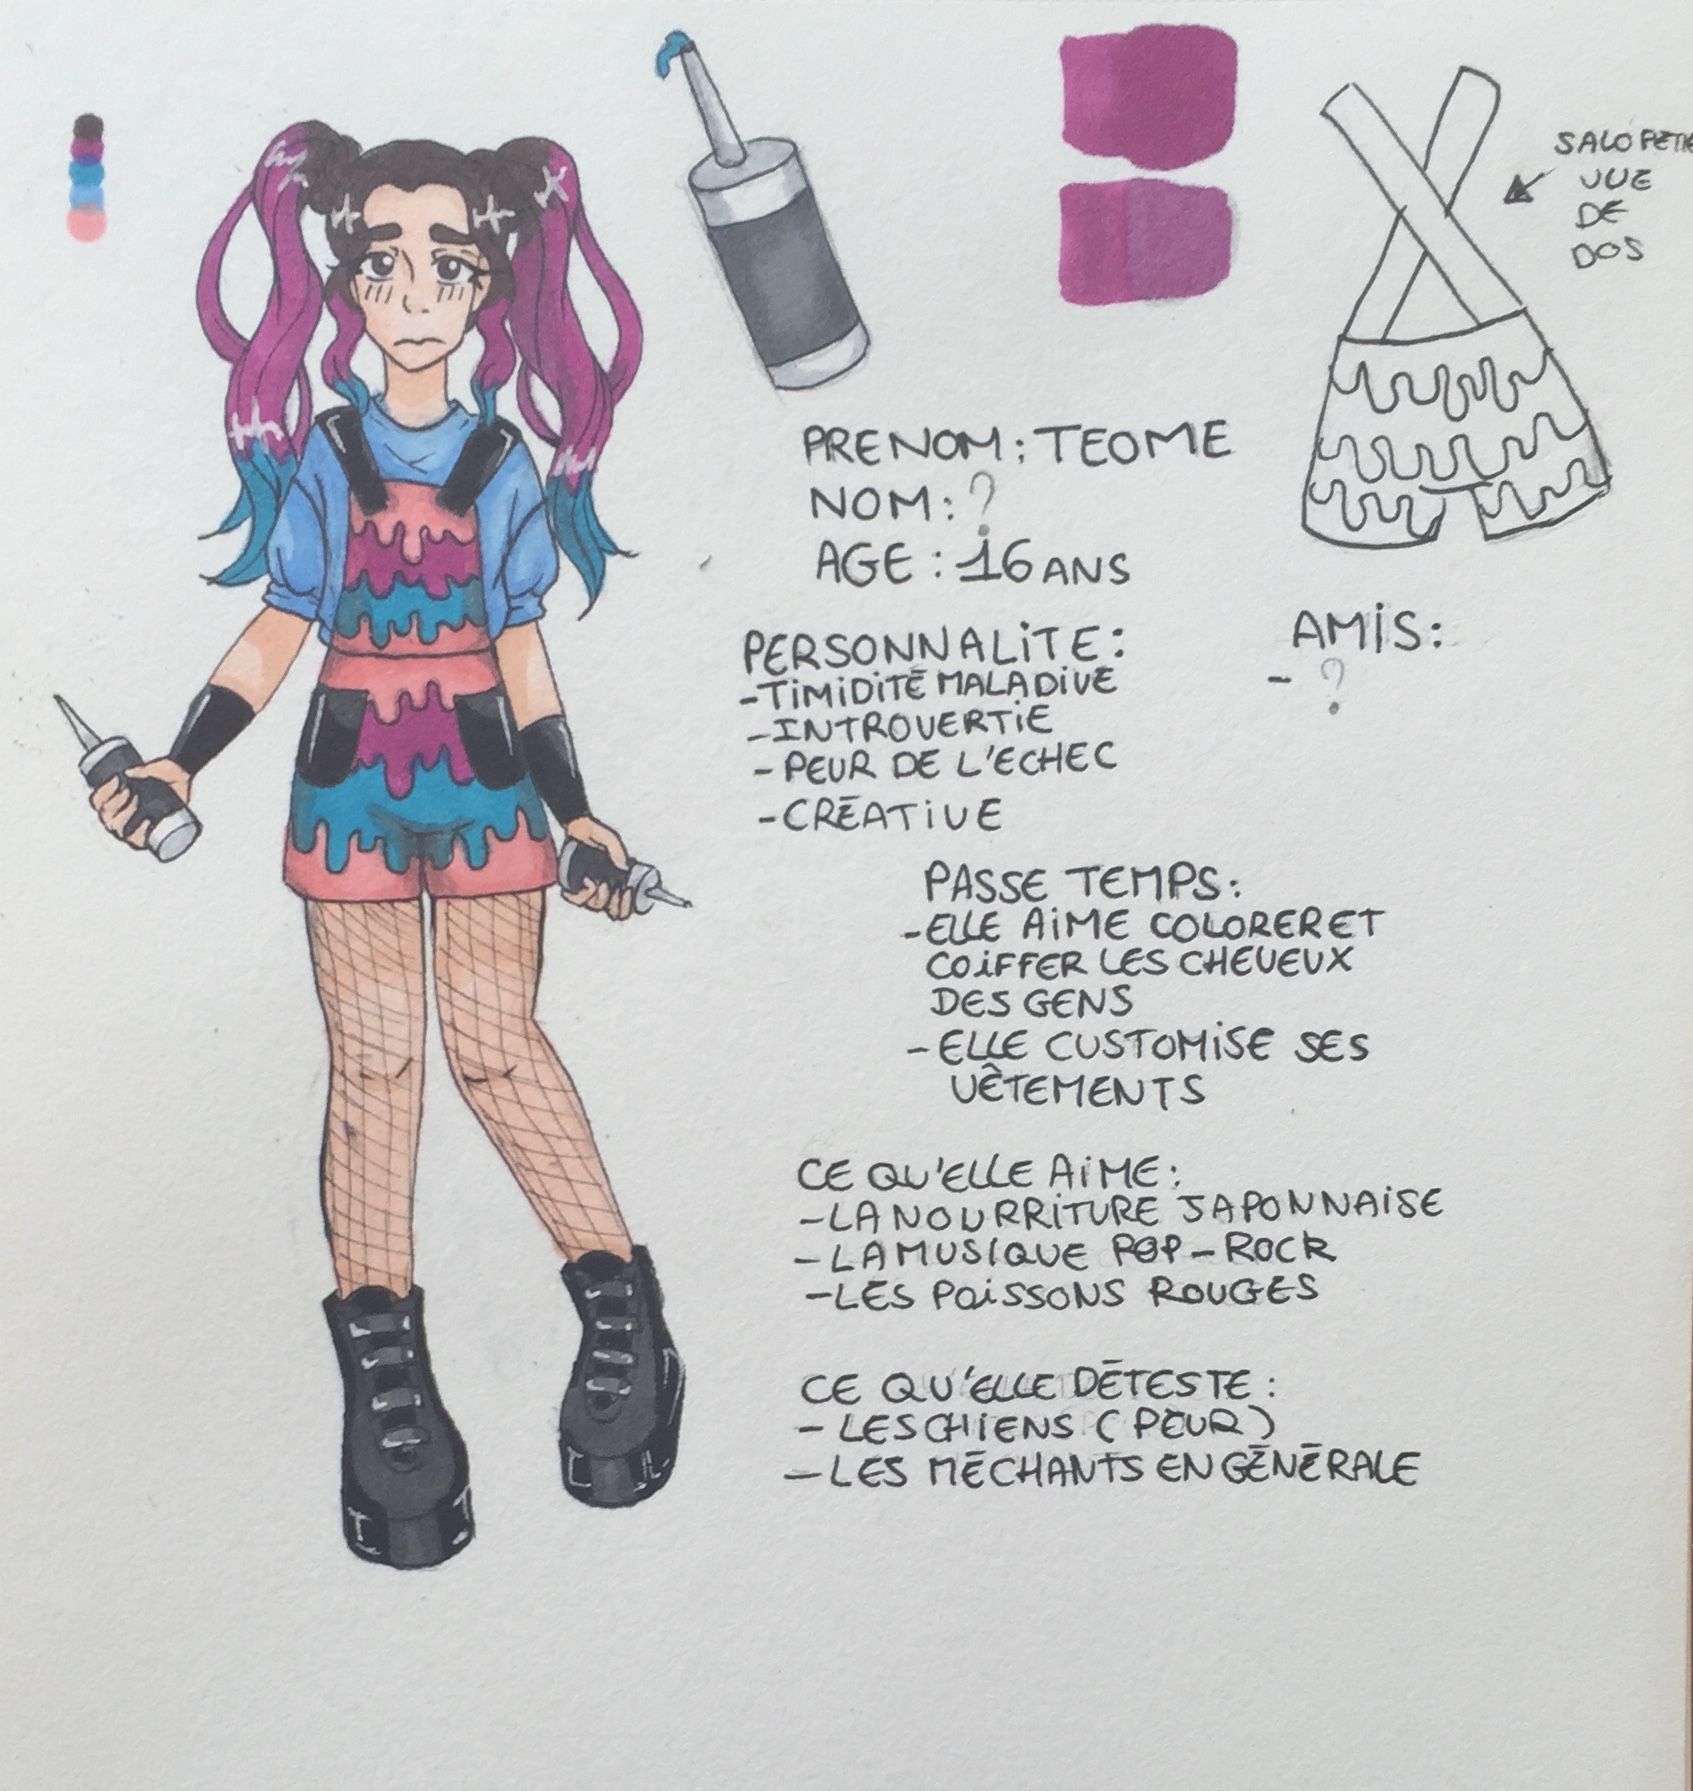 SALOPETTE
VUE
DE
DOS
PRENOM : TEOME
NOM : ?
AGE : 16 ANS
PERSONNALITE :
- TIMIDITÉ MALADIVE
- INTROVERTIE
- PEUR DE L'ECHEC
- CRÉATIVE
AMIS :
- ?
PASSE TEMPS :
- ELLE AIME COLORER ET
COIFFER LES CHEVEUX
DES GENS
- ELLE CUSTOMISE SES
VÊTEMENTS
CE QU'ELLE AIME :
- LA NOURRITURE JAPONNAISE
- LA MUSIQUE POP - ROCK
- LES POISSONS ROUGES
CE QU'ELLE DÉTESTE :
- LES CHIENS (PEUR)
- LES MÉCHANTS EN GÉNÉRALE